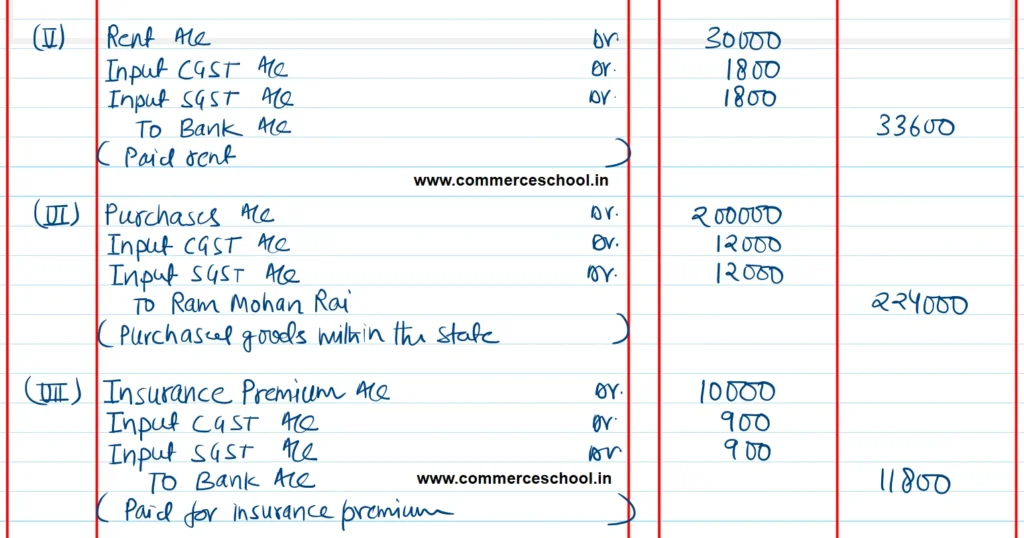 (VI) Rent A/c Dr. 30000
Input CGST A/c Dr. 1800
Input SGST A/c Dr. 1800
To Bank A/c 33600
( Paid rent )
www.commerceschool.in
(VII) Purchases A/c Dr. 200000
Input CGST A/c Dr. 12000
Input SGST A/c Dr. 12000
To Ram Mohan Rai 224000
( Purchased goods within the state )
(VIII) Insurance Premium A/c Dr. 10000
Input CGST A/c Dr. 900
Input SGST A/c Dr 900
To Bank A/c www.commerceschool.in 11800
( Paid for insurance premium )